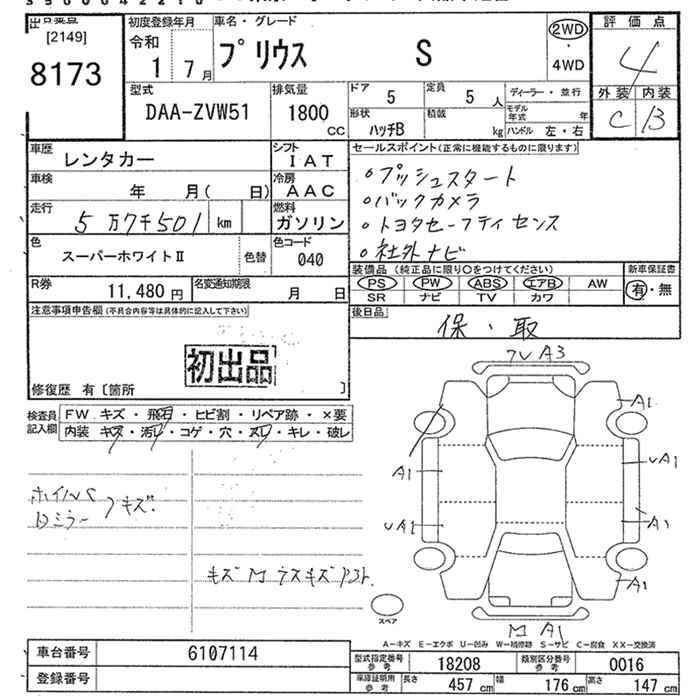 [2149]
8173
初度登録年月
令和
1 7月
車名・グレード
プリウス S
2WD
・
4WD
評価点
4
外装 内装
C B
型式
DAA-ZVW51
排気量
1800
CC
ドア 5
定員 5 人
形状 ハッチB
積載 kg
ディーラー・並行
モデル年式 年
ハンドル 左・右
車歴 レンタカー
シフト IAT
車検 年 月( 日)
冷房 AAC
走行 5万7千501 km
燃料 ガソリン
色 スーパーホワイトⅡ 色替
色コード 040
R券 11,480円
名変通知期限 月 日
セールスポイント(正常に機能するものに限ります)
○プッシュスタート
○バックカメラ
○トヨタセーフティセンス
○社外ナビ
装備品 (純正品に限り〇をつけてください)
PS PW ABS エアB AW
SR ナビ TV カワ
新車保証書
有・無
後日品
保・取
注意事項申告欄(不具合内容等は具体的に記入して下さい)
初出品
修復歴 有〔箇所 〕
検査員記入欄
FW キズ・飛石・ヒビ割・リペア跡・×要
内装 キズ・汚レ・コゲ・穴・スレ・キレ・破レ
キズ
キズ M ウスキズ
フレA3
A1
A1
uA1
uA1
A1
A1
M A1
スペア
A−キズ E−エクボ U−凹み W−補修跡 S−サビ C−腐食 XX−交換済
車台番号 6107114
登録番号
型式指定番号 参考 18208
類別区分番号 参考 0016
車庫証明用 参考
長さ 457cm
幅 176cm
高さ 147cm